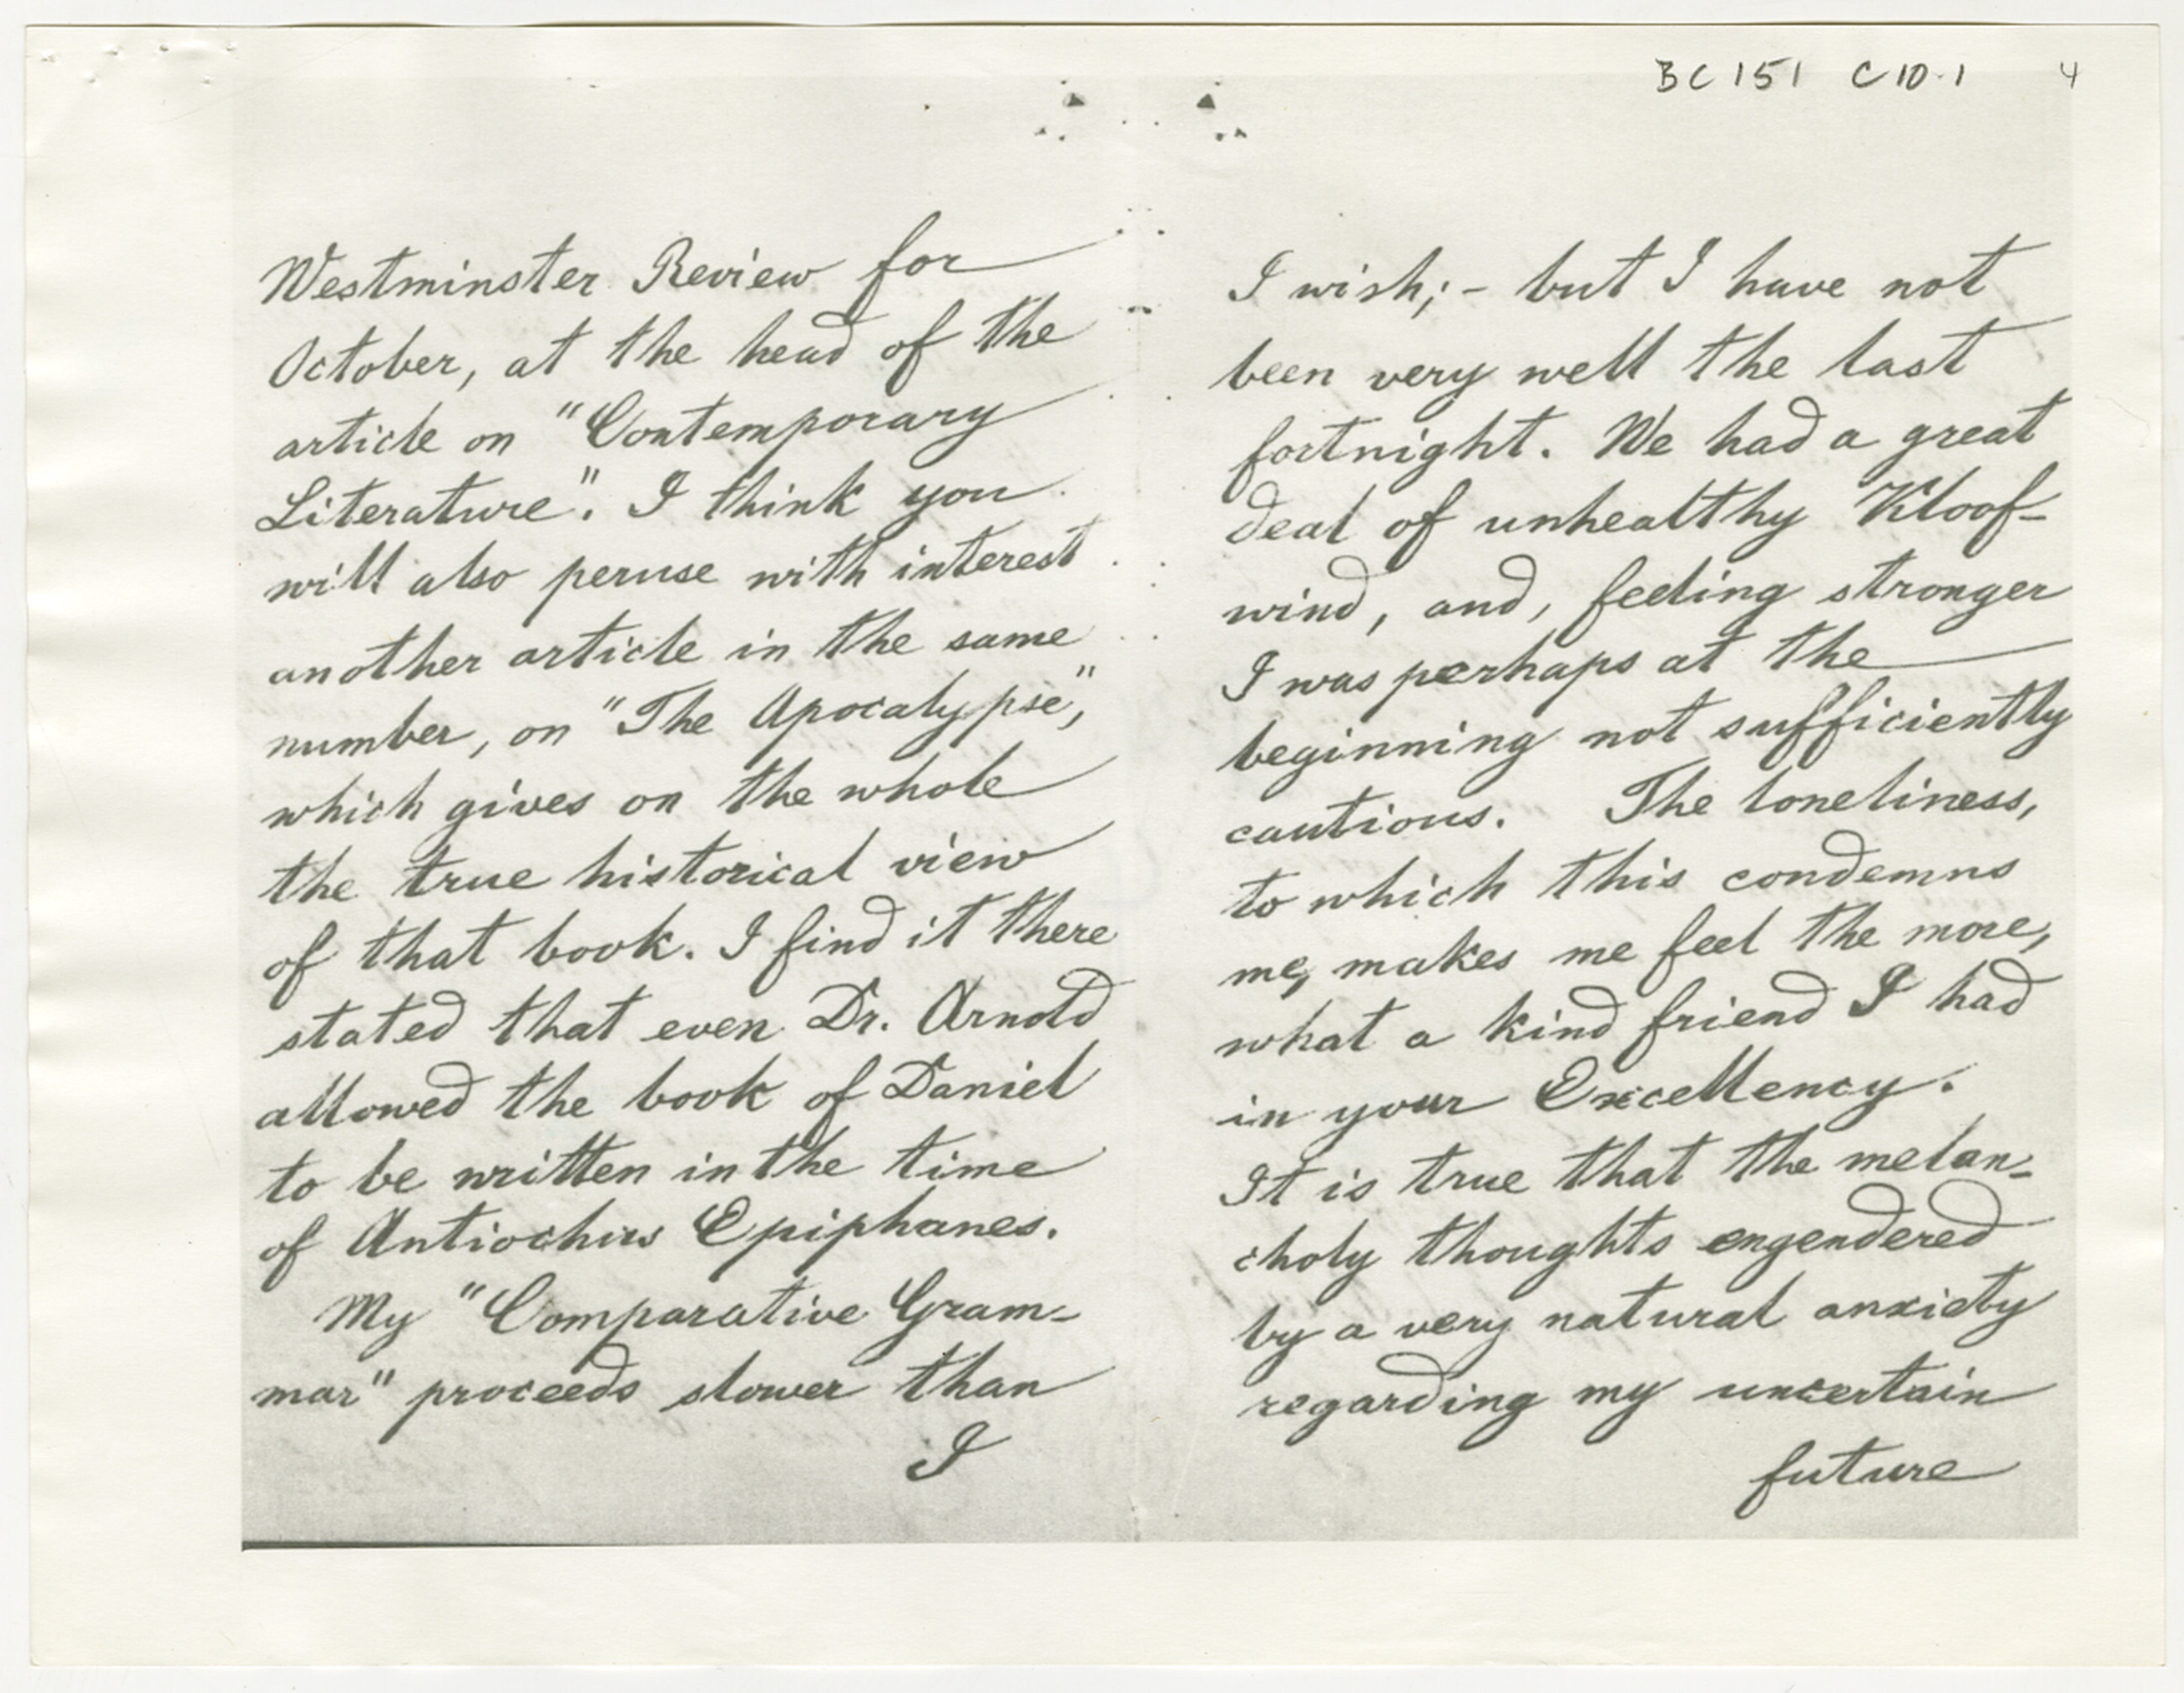 BC 151 C10.1 4
Westminster Review for
October, at the head of the
article on "Contemporary
Literature". I think you
will also peruse with interest
another article in the same
number, on "The Apocalypse",
which gives on the whole
the true historical view
of that book. I find it there
stated that even Dr. Arnold
allowed the book of Daniel
to be written in the time
of Antiochus Epiphanes.
My "Comparative Gram-
mar" proceeds slower than
I
I wish; - but I have not
been very well the last
fortnight. We had a great
deal of unhealthy Kloof-
wind, and, feeling stronger
I was perhaps at the
beginning not sufficiently
cautious. The loneliness,
to which this condemns
me, makes me feel the more,
what a kind friend I had
in your Excellency.
It is true that the melan-
choly thoughts engendered
by a very natural anxiety
regarding my uncertain
future